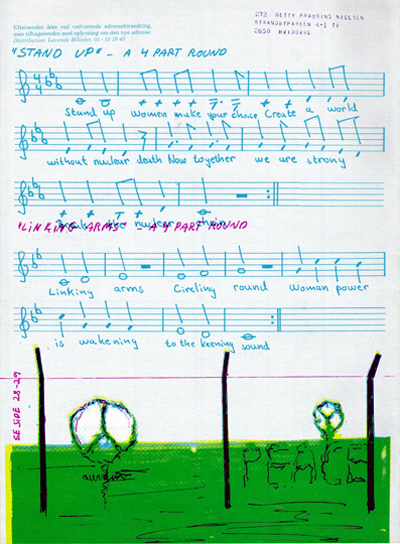 Eftersendes ikke ved vedvarende adresseforandring,
men tilbagesendes med oplysning om den nye adresse
Distribution: Levende Billeder.
272 BETTY NIELSEN
STRANDBYPARKEN 4-1 TV
2650 HVIDOVRE
"STAND UP" - A 4 PART ROUND
4 4
Stand up women make your choice Create a world
without nuclear death Now together we are strong
Break the nuclear chain
"LINKING ARMS" - A 4 PART ROUND
Linking arms Circling round Woman power
is wakening to the keening sound
SE SIDE 28-29
PEACE